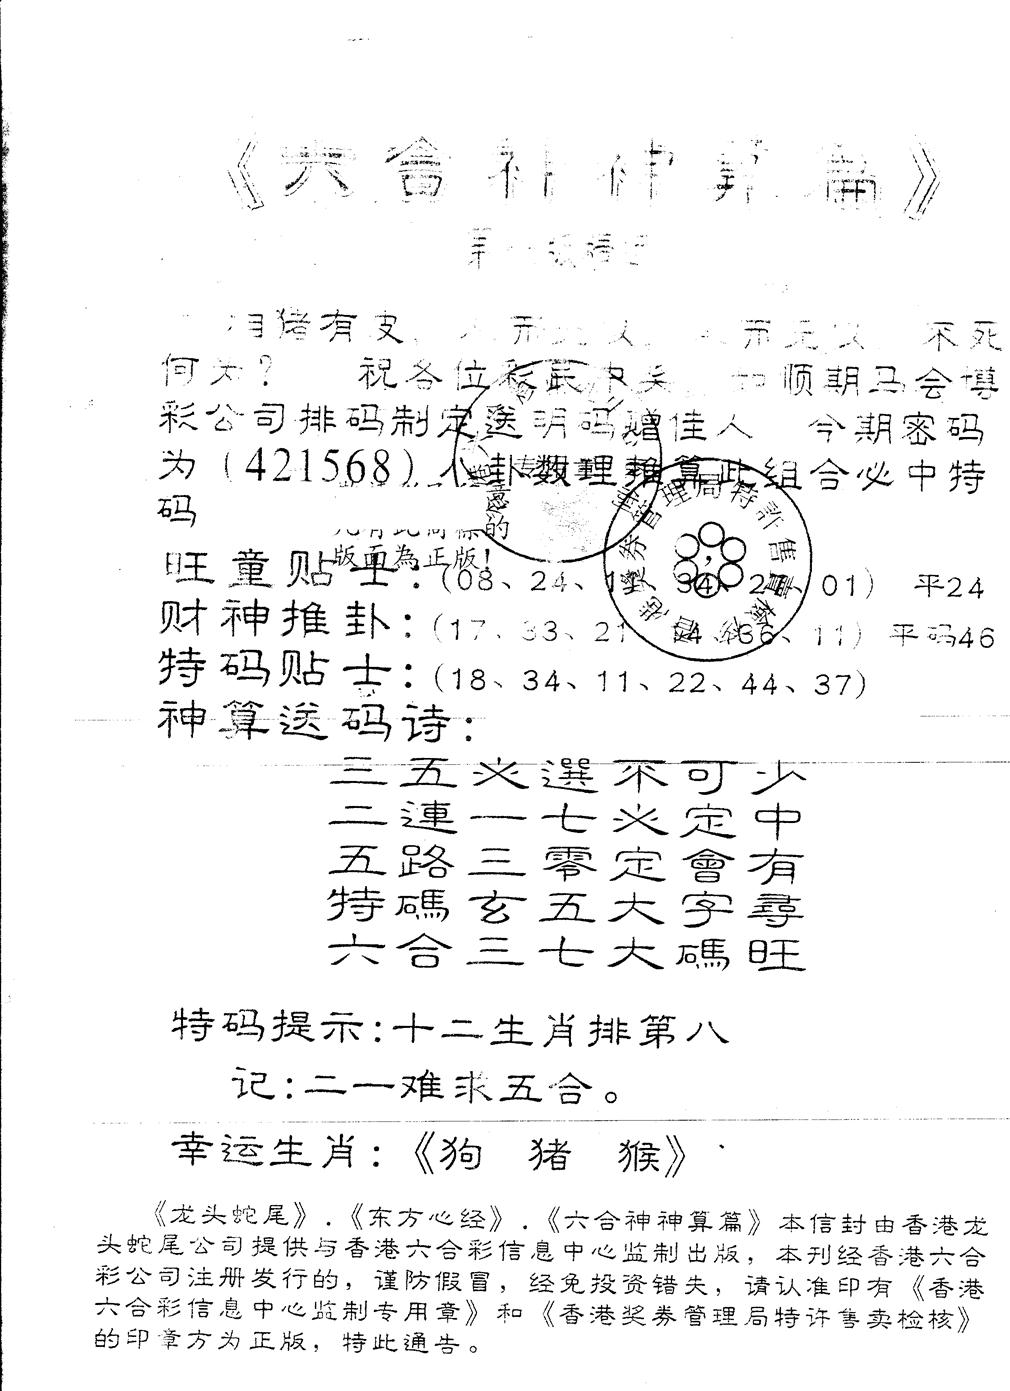 《六會神神算篇》
相猪有皮，人而无仪，人而无仪，不死
何为？ 祝各位彩民中奖，如顺期马会博
彩公司排码制定送明码赠佳人 今期密码
为（421568）八卦数理推算此组合必中特
码
版面為正版!
旺童贴士：(08、24、1 、34、2 、01) 平24
财神推卦：(17、33、21、 4、36、11) 平码46
特码贴士：(18、34、11、22、44、37)
神算送码诗：
三五必選不可少
二連一七必定中
五路三零定會有
特碼玄五大字尋
六合三七大碼旺
特码提示：十二生肖排第八
记：二一难求五合。
幸运生肖：《狗 猪 猴》
《龙头蛇尾》.《东方心经》.《六合神神算篇》本信封由香港龙
头蛇尾公司提供与香港六合彩信息中心监制出版，本刊经香港六合
彩公司注册发行的，谨防假冒，经免投资错失，请认准印有《香港
六合彩信息中心监制专用章》和《香港奖券管理局特许售卖检核》
的印章方为正版，特此通告。